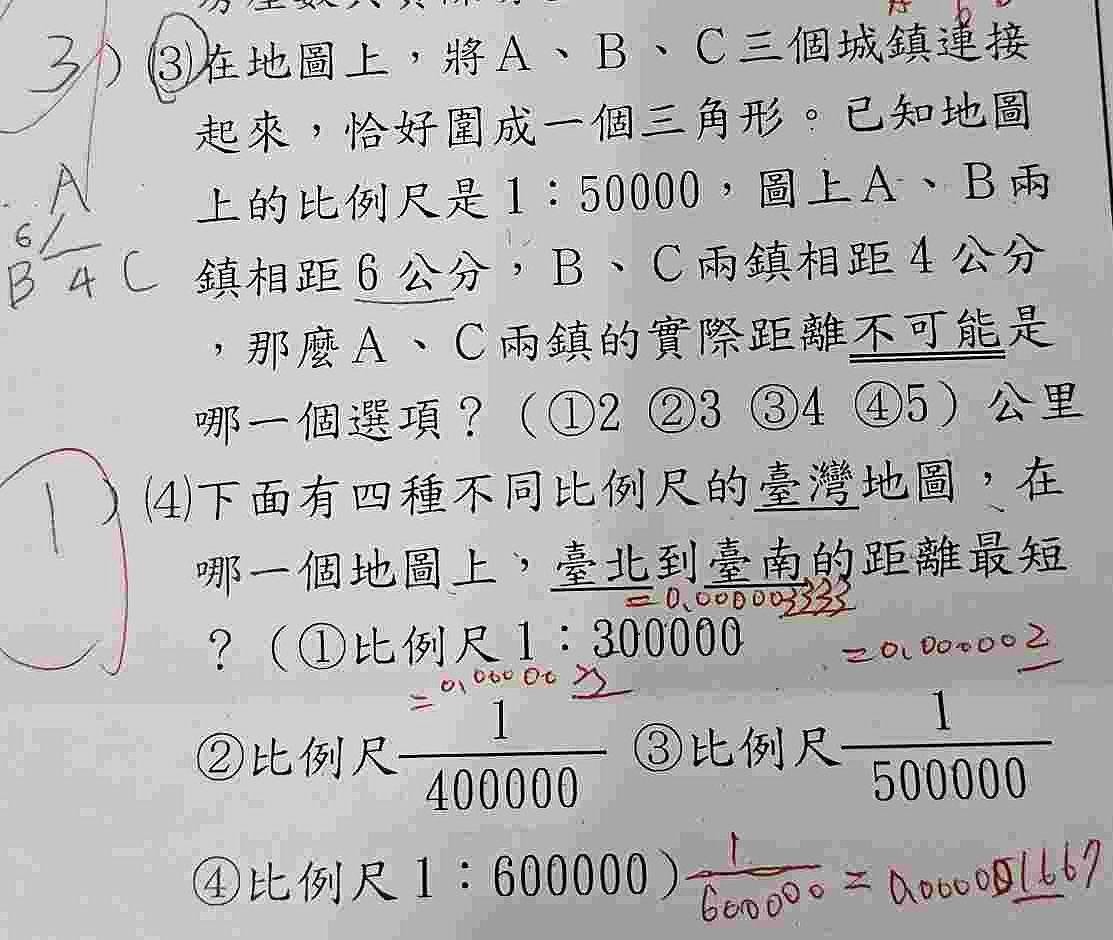 3) (3)在地圖上，將A、B、C三個城鎮連接
起來，恰好圍成一個三角形。已知地圖
上的比例尺是1：50000，圖上A、B兩
鎮相距6公分，B、C兩鎮相距4公分
，那麼A、C兩鎮的實際距離不可能是
哪一個選項？（①2 ②3 ③4 ④5）公里
A
6
B 4 C
1) (4)下面有四種不同比例尺的臺灣地圖，在
哪一個地圖上，臺北到臺南的距離最短
=0.000003333
？（①比例尺1：300000
=0.000002
②比例尺1/400000 ③比例尺1/500000
④比例尺1：600000）1/600000